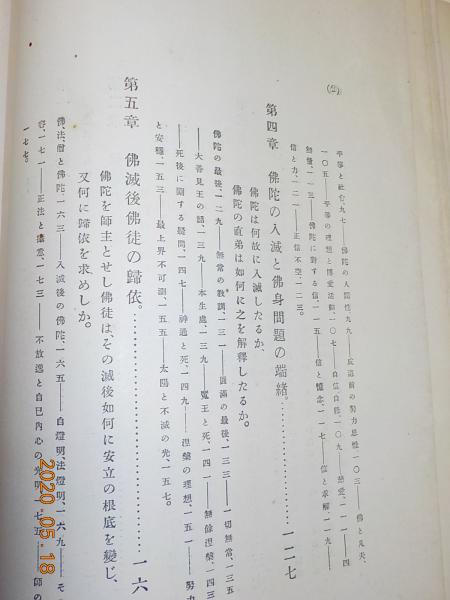 (2)
平等と社會、九七——佛陀の人間性、九九——成道前の努力思惟、一〇三——佛と凡夫、
一〇五——平等の理想と博愛活動、一〇七——自信自修、一〇九——慈愛、一一一——四
無量、一一三——佛陀に對する信、一一五——信と憶念、一一七——信と求解、一一九——
信と力、一二一——正信不空、一二三。
第四章 佛陀の入滅と佛身問題の端緒。 一二七
佛陀は何故に入滅したるか、
佛陀の直弟は如何に之を解釋したるか。
佛陀の最後、一二九——無常の教訓、一三一——圓滿の最後、一三三——一切無常、一三五
——大善見王の話、一三九——本生處、一三九——魔王と死、一四一——無餘涅槃、一四三
——死後に關する疑問、一四七——神通と死、一四九——涅槃の理想、一五一——努力
と安穩、一五三——最上界不可測、一五五——太陽と不滅の光、一五七。
第五章 佛滅後佛徒の歸依。 一六
佛陀を師主とせし佛徒は、その滅後如何に安立の根底を變じ、
又何に歸依を求めしか。
佛、法、僧と佛陀、一六三——入滅後の佛陀、一六五——自燈明、法燈明、一六九——そ
容、七一——正法と攝意、一七三——不放逸と自己內心の光明、一七五——師の
一七七。
2020.05.18